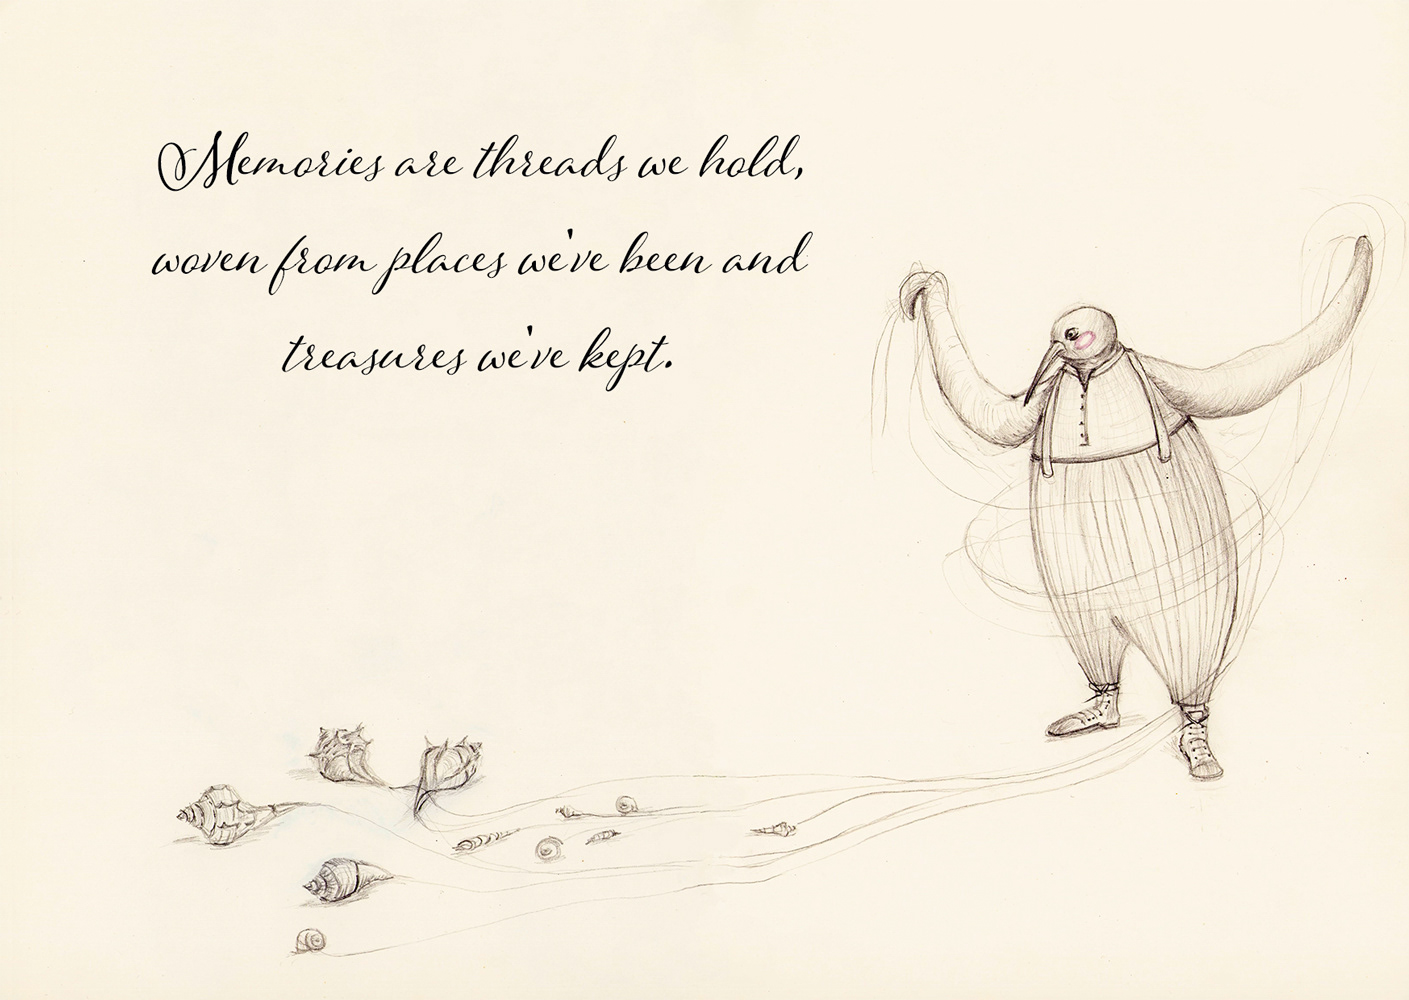 Memories are threads we hold,
woven from places we've been and
treasures we've kept.